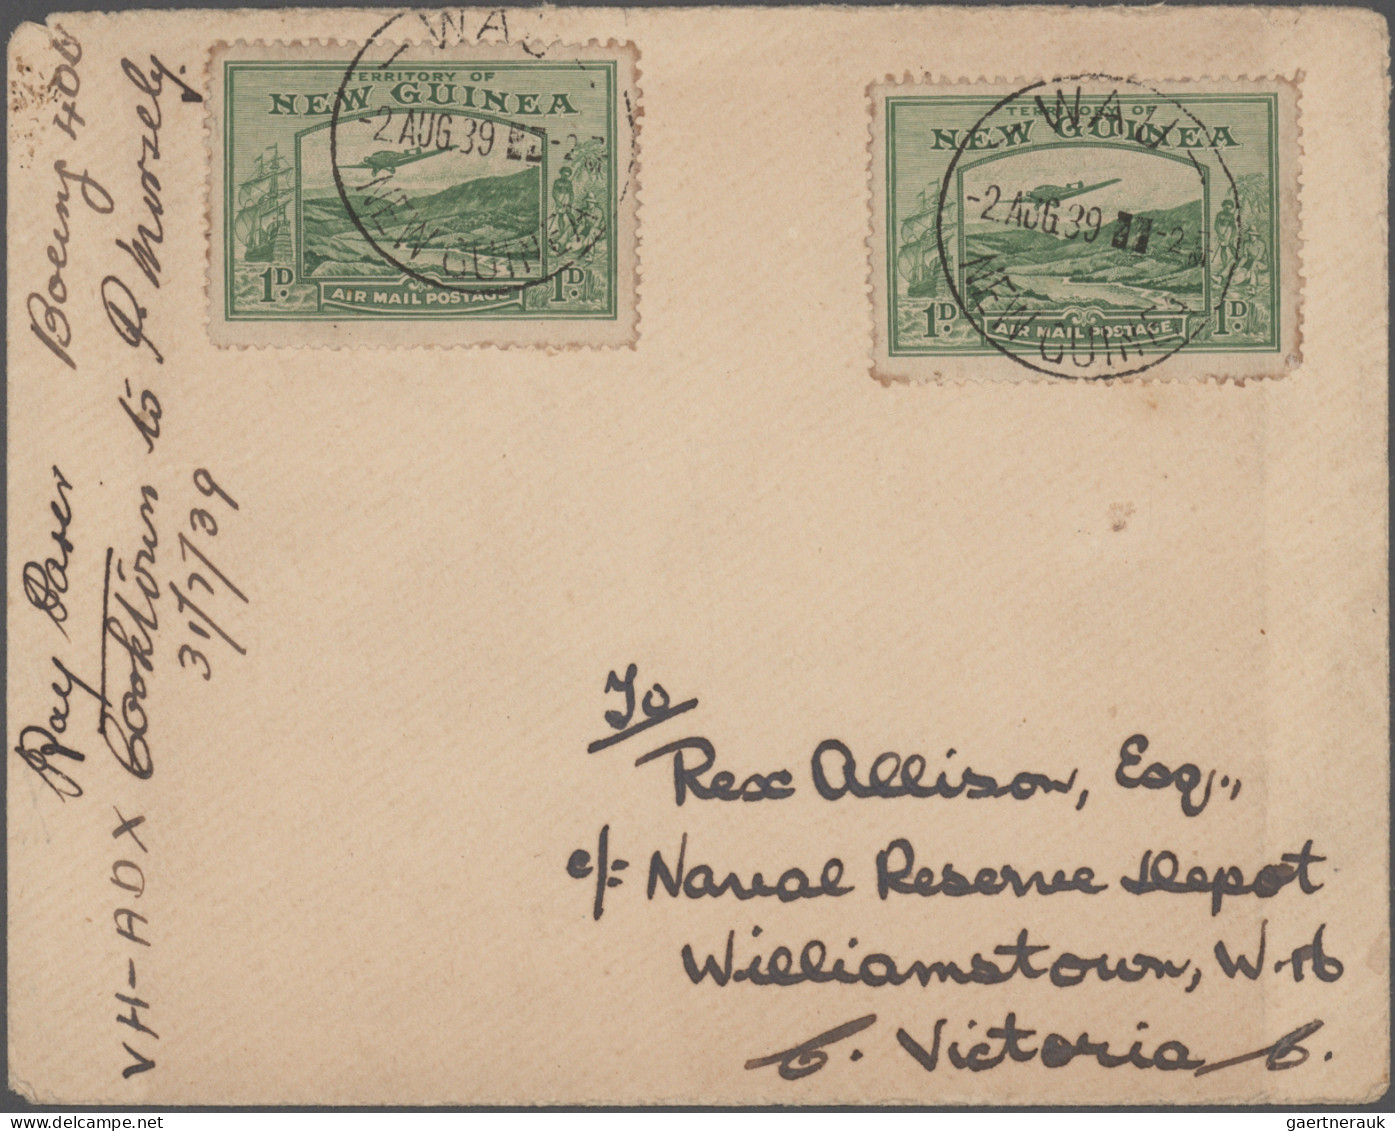 WAU
TERRITORY OF
NEW GUINEA
-2 AUG.39
NEW GUINEA
1D. 1D.
AIR MAIL POSTAGE
WAU
TERRITORY OF
NEW GUINEA
-2 AUG.39
NEW GUINEA
1D. 1D.
AIR MAIL POSTAGE
Ray Boeing 40
VH-ADX Cooktown to P. Moresely.
31/7/39
To
Rex Allison, Esq.,
c/= Naval Reserve Depot
Williamstown, W.16
6. Victoria 6.
gaertnerauk